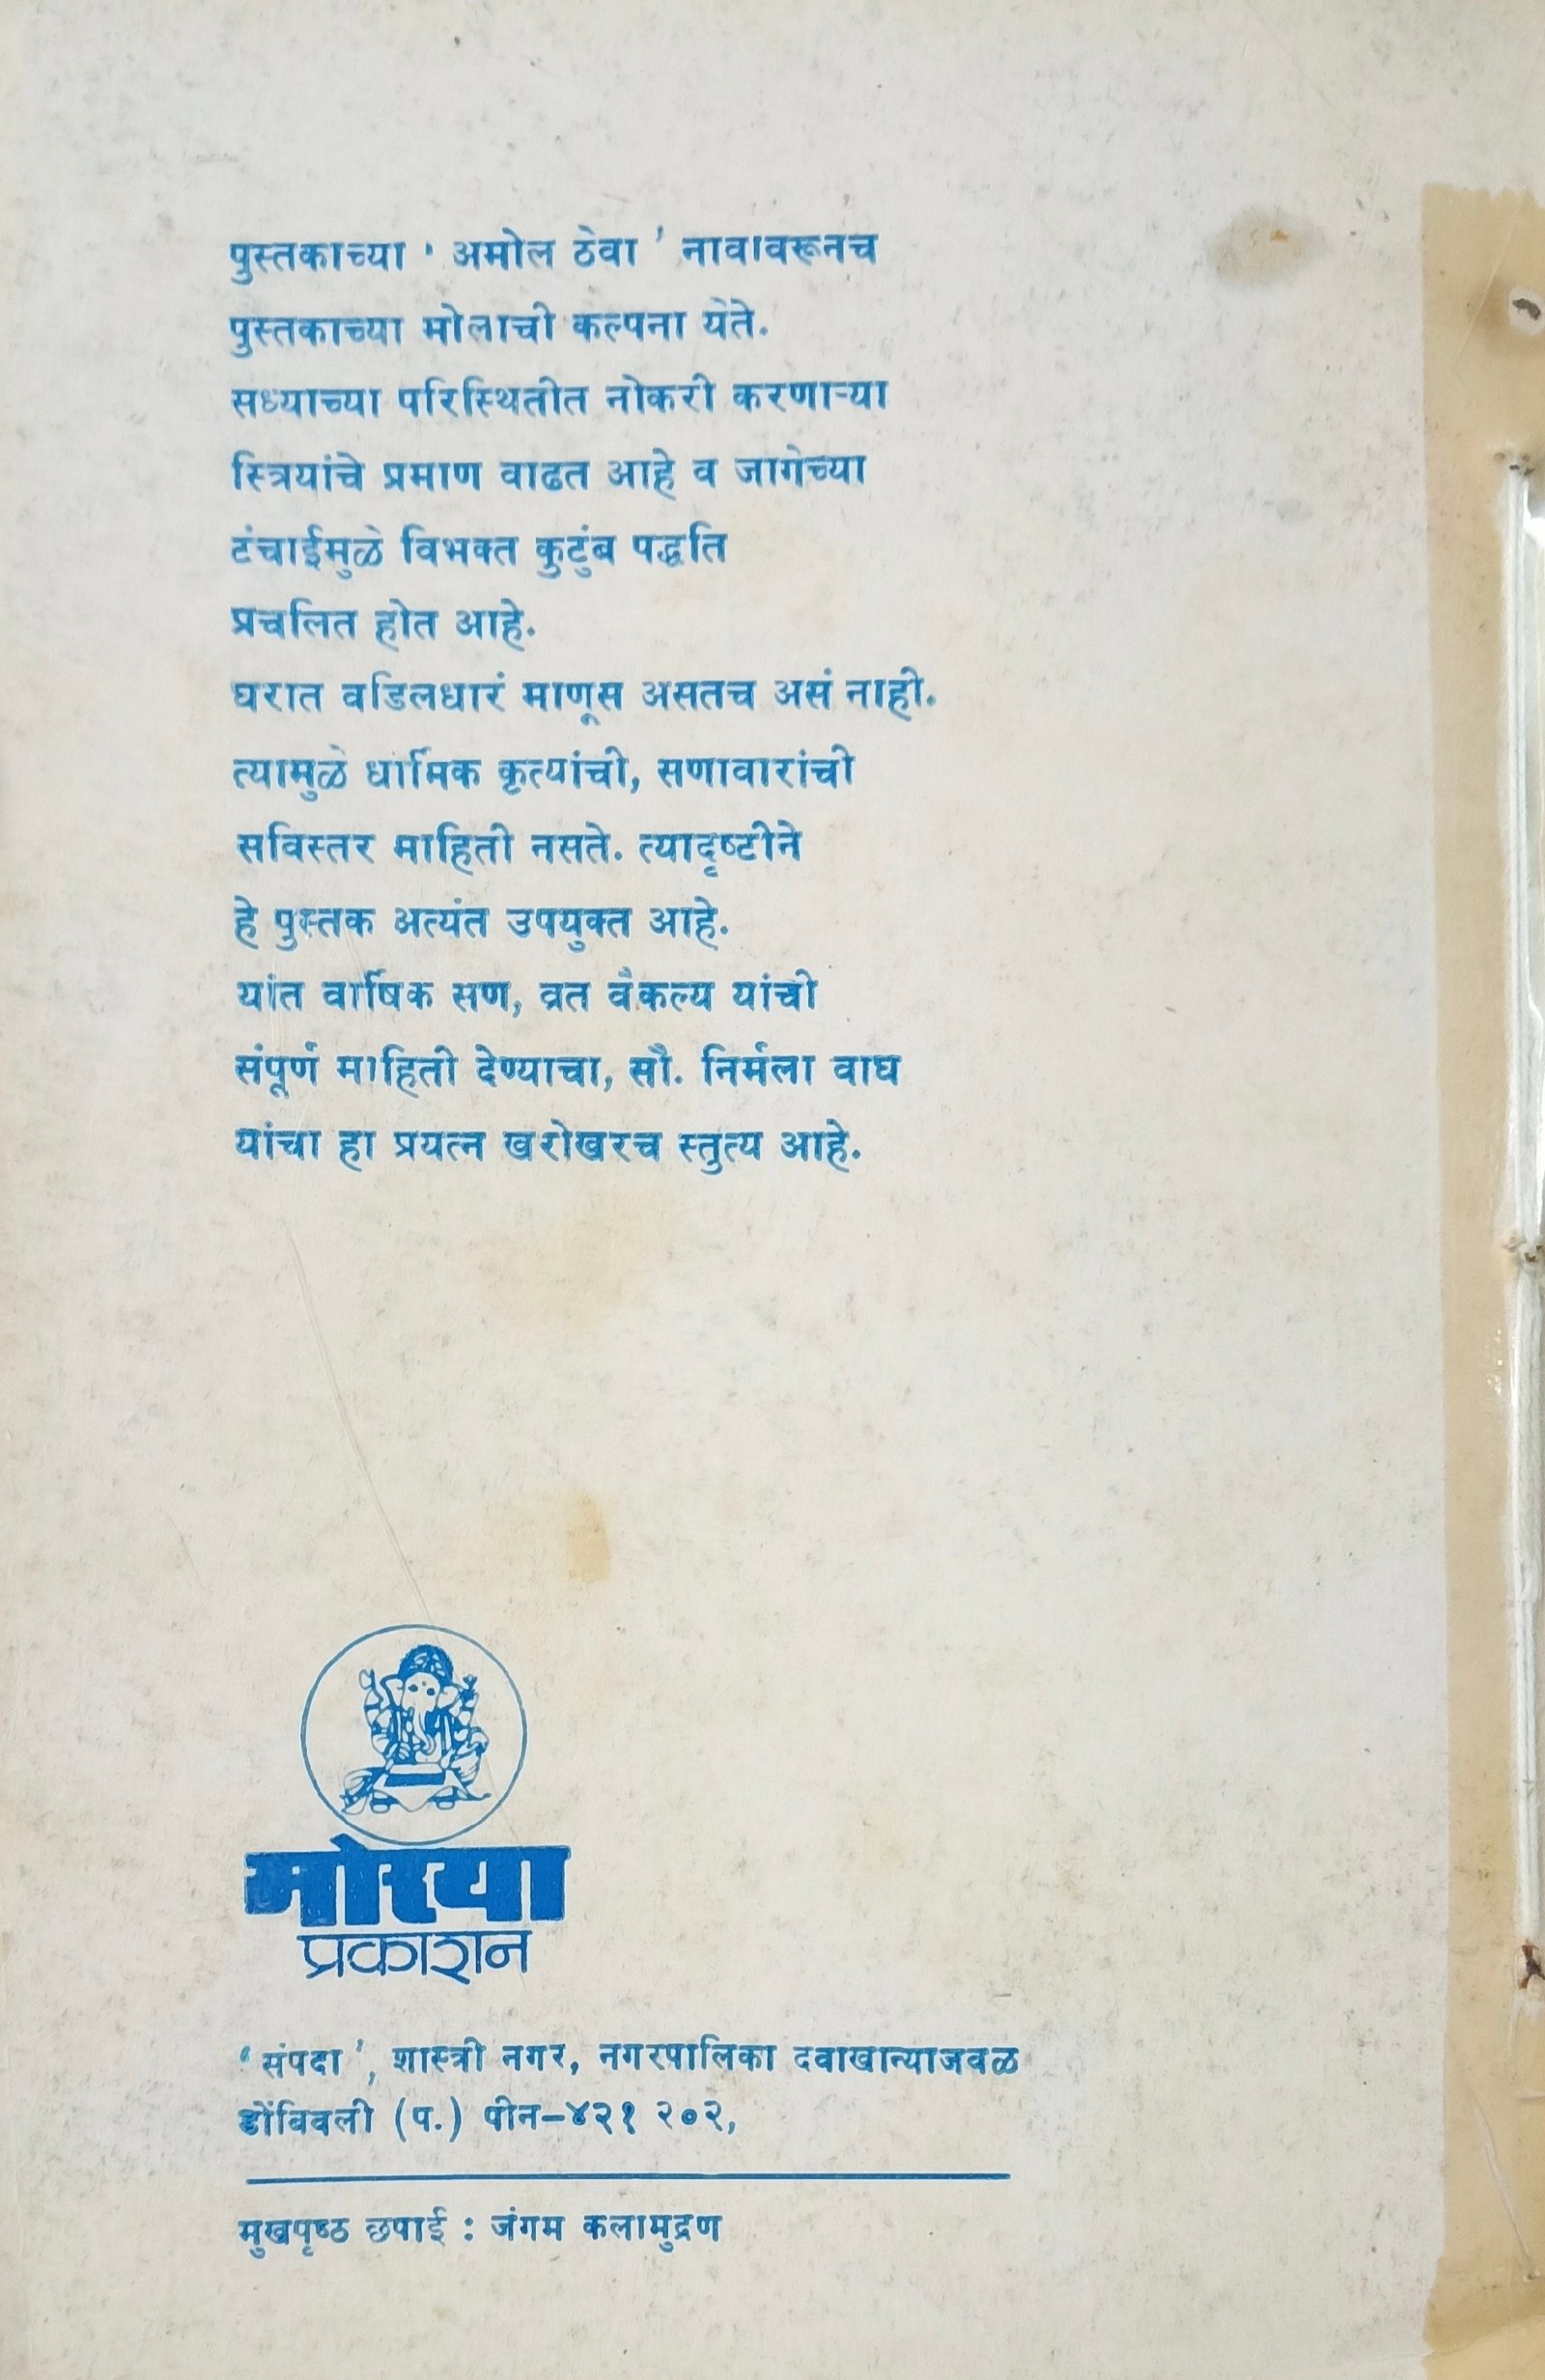 पुस्तकाच्या ' अमोल ठेवा ' नावावरूनच
पुस्तकाच्या मोलाची कल्पना येते.
सध्याच्या परिस्थितीत नोकरी करणाऱ्या
स्त्रियांचे प्रमाण वाढत आहे व जागेच्या
टंचाईमुळे विभक्त कुटुंब पद्धति
प्रचलित होत आहे.
घरात वडिलधारं माणूस असतच असं नाही.
त्यामुळे धार्मिक कृत्यांची, सणावारांची
सविस्तर माहिती नसते. त्यादृष्टीने
हे पुस्तक अत्यंत उपयुक्त आहे.
यांत वार्षिक सण, व्रत वैकल्य यांची
संपूर्ण माहिती देण्याचा, सौ. निर्मला वाघ
यांचा हा प्रयत्न खरोखरच स्तुत्य आहे.
मोरया
प्रकाशन
' संपदा ', शास्त्री नगर, नगरपालिका दवाखान्याजवळ
डोंबिवली (प.) पीन-४२१ २०२,
मुखपृष्ठ छपाई : जंगम कलामुद्रण